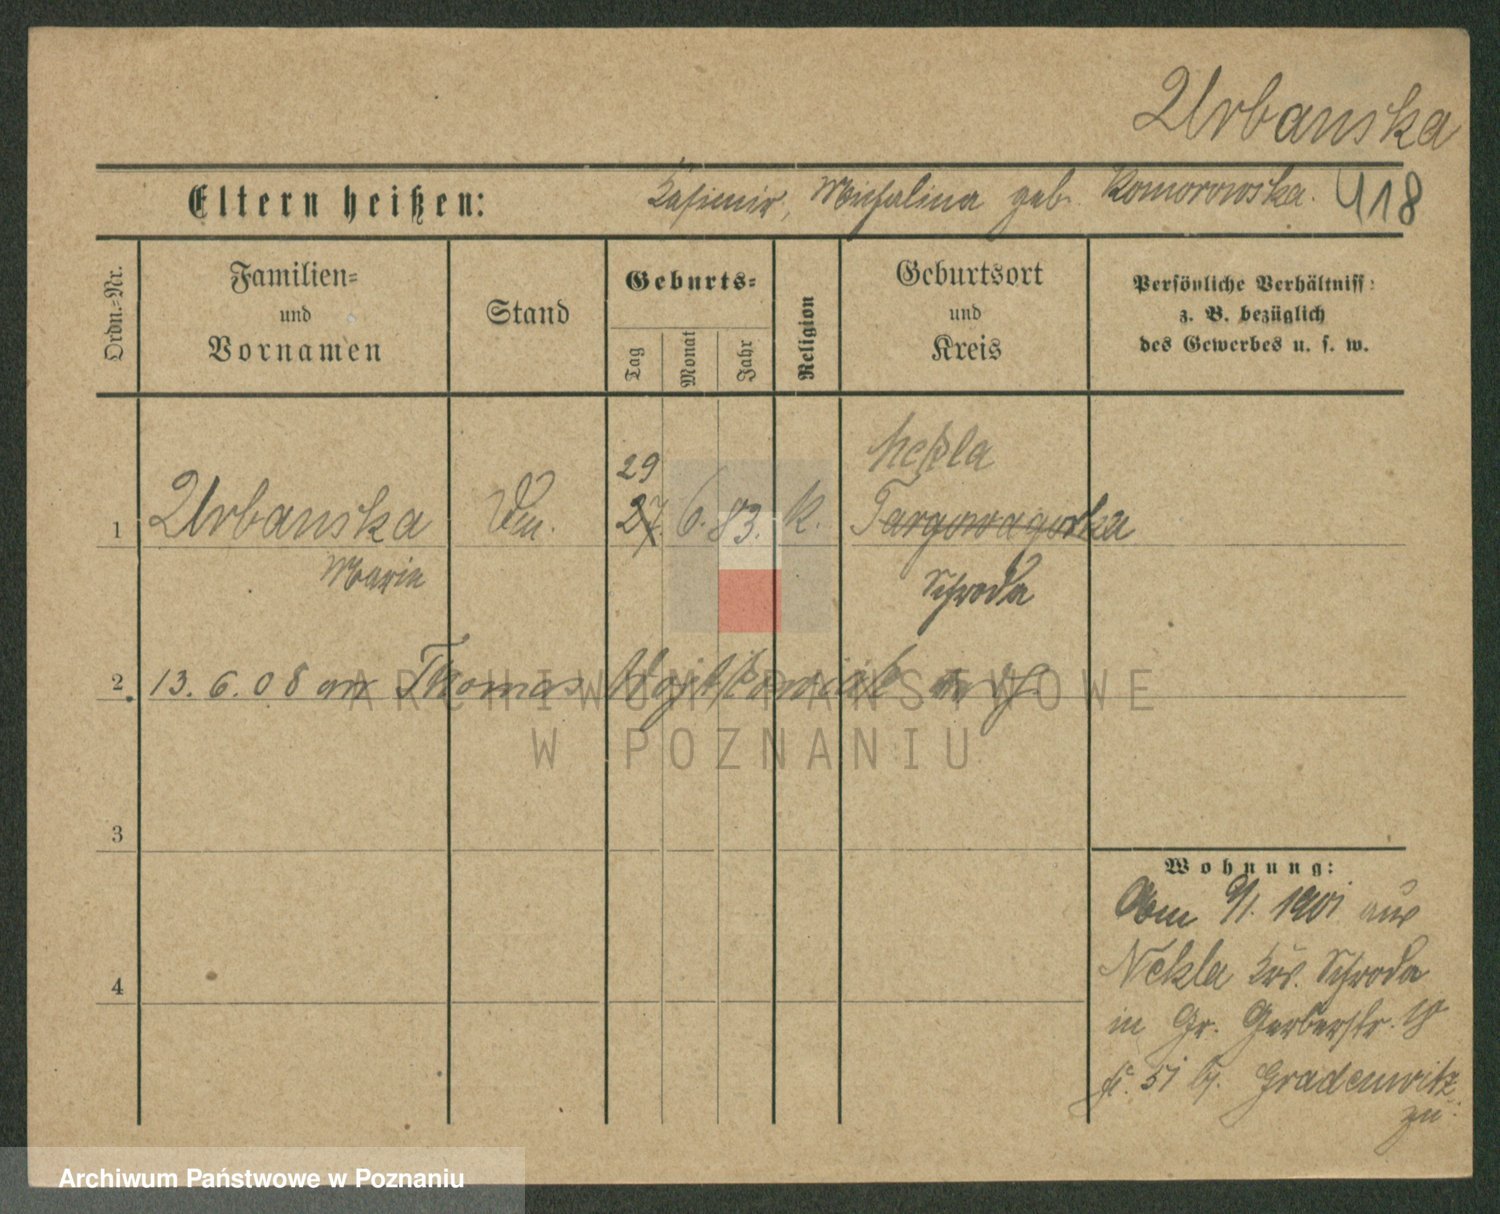 Urbanska
Eltern heißen: Kasimir, Michalina geb. Komorowska. 418
Ordn.-Nr.
Familien-
und
Vornamen
Stand
Geburts-
Tag
Monat
Jahr
Religion
Geburtsort
und
Kreis
Persönliche Verhältniss:
z. B. bezüglich
des Gewerbes u. s. w.
29 Nekla
1 Urbanska 27. 6. 83. K. Targowagorka
Maria Schroda
2 13. 6. 08 an Thomas
3
Wohnung:
Vom 9/1. 1901 aus
Nekla Krs. Schroda
in Gr. Gerberstr.
51 Gradenwitz
zu.
4
ARCHIWUM PAŃSTWOWE
W POZNANIU
Archiwum Państwowe w Poznaniu